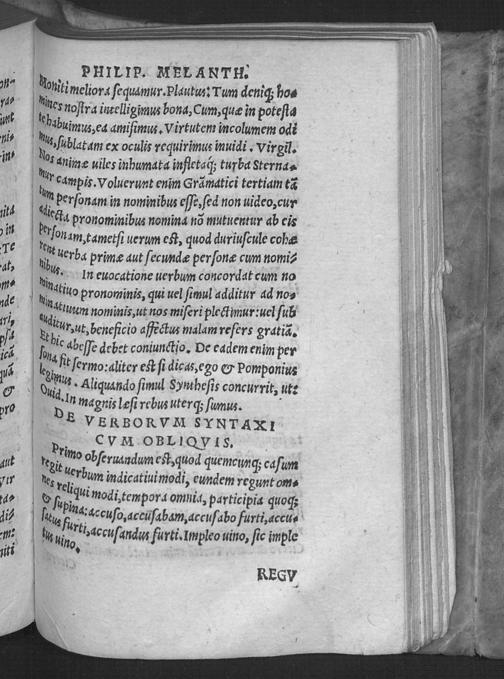 PHILIP. MELANTH.
Moniti meliora sequamur. Plautus: Tum deniq; ho-
mines nostra intelligimus bona, Cum, quæ in potesta
te habuimus, ea amisimus. Virtutem incolumem odi
mus, sublatam ex oculis requirimus inuidi. Virgil.
Nos animæ uiles inhumata infletaq; turba Sterna-
mur campis. Voluerunt enim Grãmatici tertiam tã
tum personam in nominibus esse, sed non uideo, cur
adiecta pronominibus nomina nõ mutuentur ab eis
personam, tametsi uerum est, quod duriuscule cohæ
rent uerba primæ aut secundæ personæ cum nomi-
nibus. In euocatione uerbum concordat cum no
minatiuo pronominis, qui uel simul additur ad no-
minatiuum nominis, ut nos miseri plectimur: uel sub
auditur, ut, beneficio affectus malam refers gratiã.
Et hic abesse debet coniunctio. De eadem enim per
sona fit sermo: aliter est si dicas, ego & Pomponius
legimus. Aliquando simul Synthesis concurrit, ut:
Ouid. In magnis læsi rebus uterq; sumus.
DE VERBORVM SYNTAXI
CVM OBLIQVIS.
Primo obseruandum est, quod quemcunq; casum
regit uerbum indicatiui modi, eundem regunt om-
nes reliqui modi, tempora omnia, participia quoq;
& supina: accuso, accusabam, accusabo furti, accu-
satus furti, accusandus furti. Impleo uino, sic imple
tus uino.
REGV